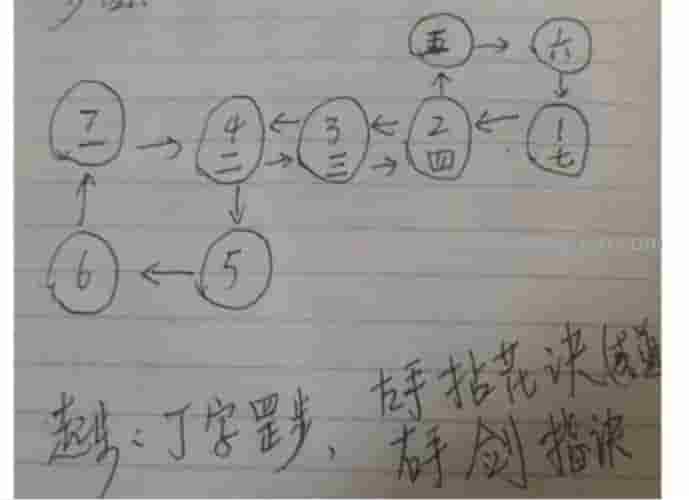 五 → 六
7 一 → 4 二 ← → 3 三 ← → 2 四 ← 1 七
6 ← 5
左手拈花诀
起步：丁字罡步，右手剑指诀